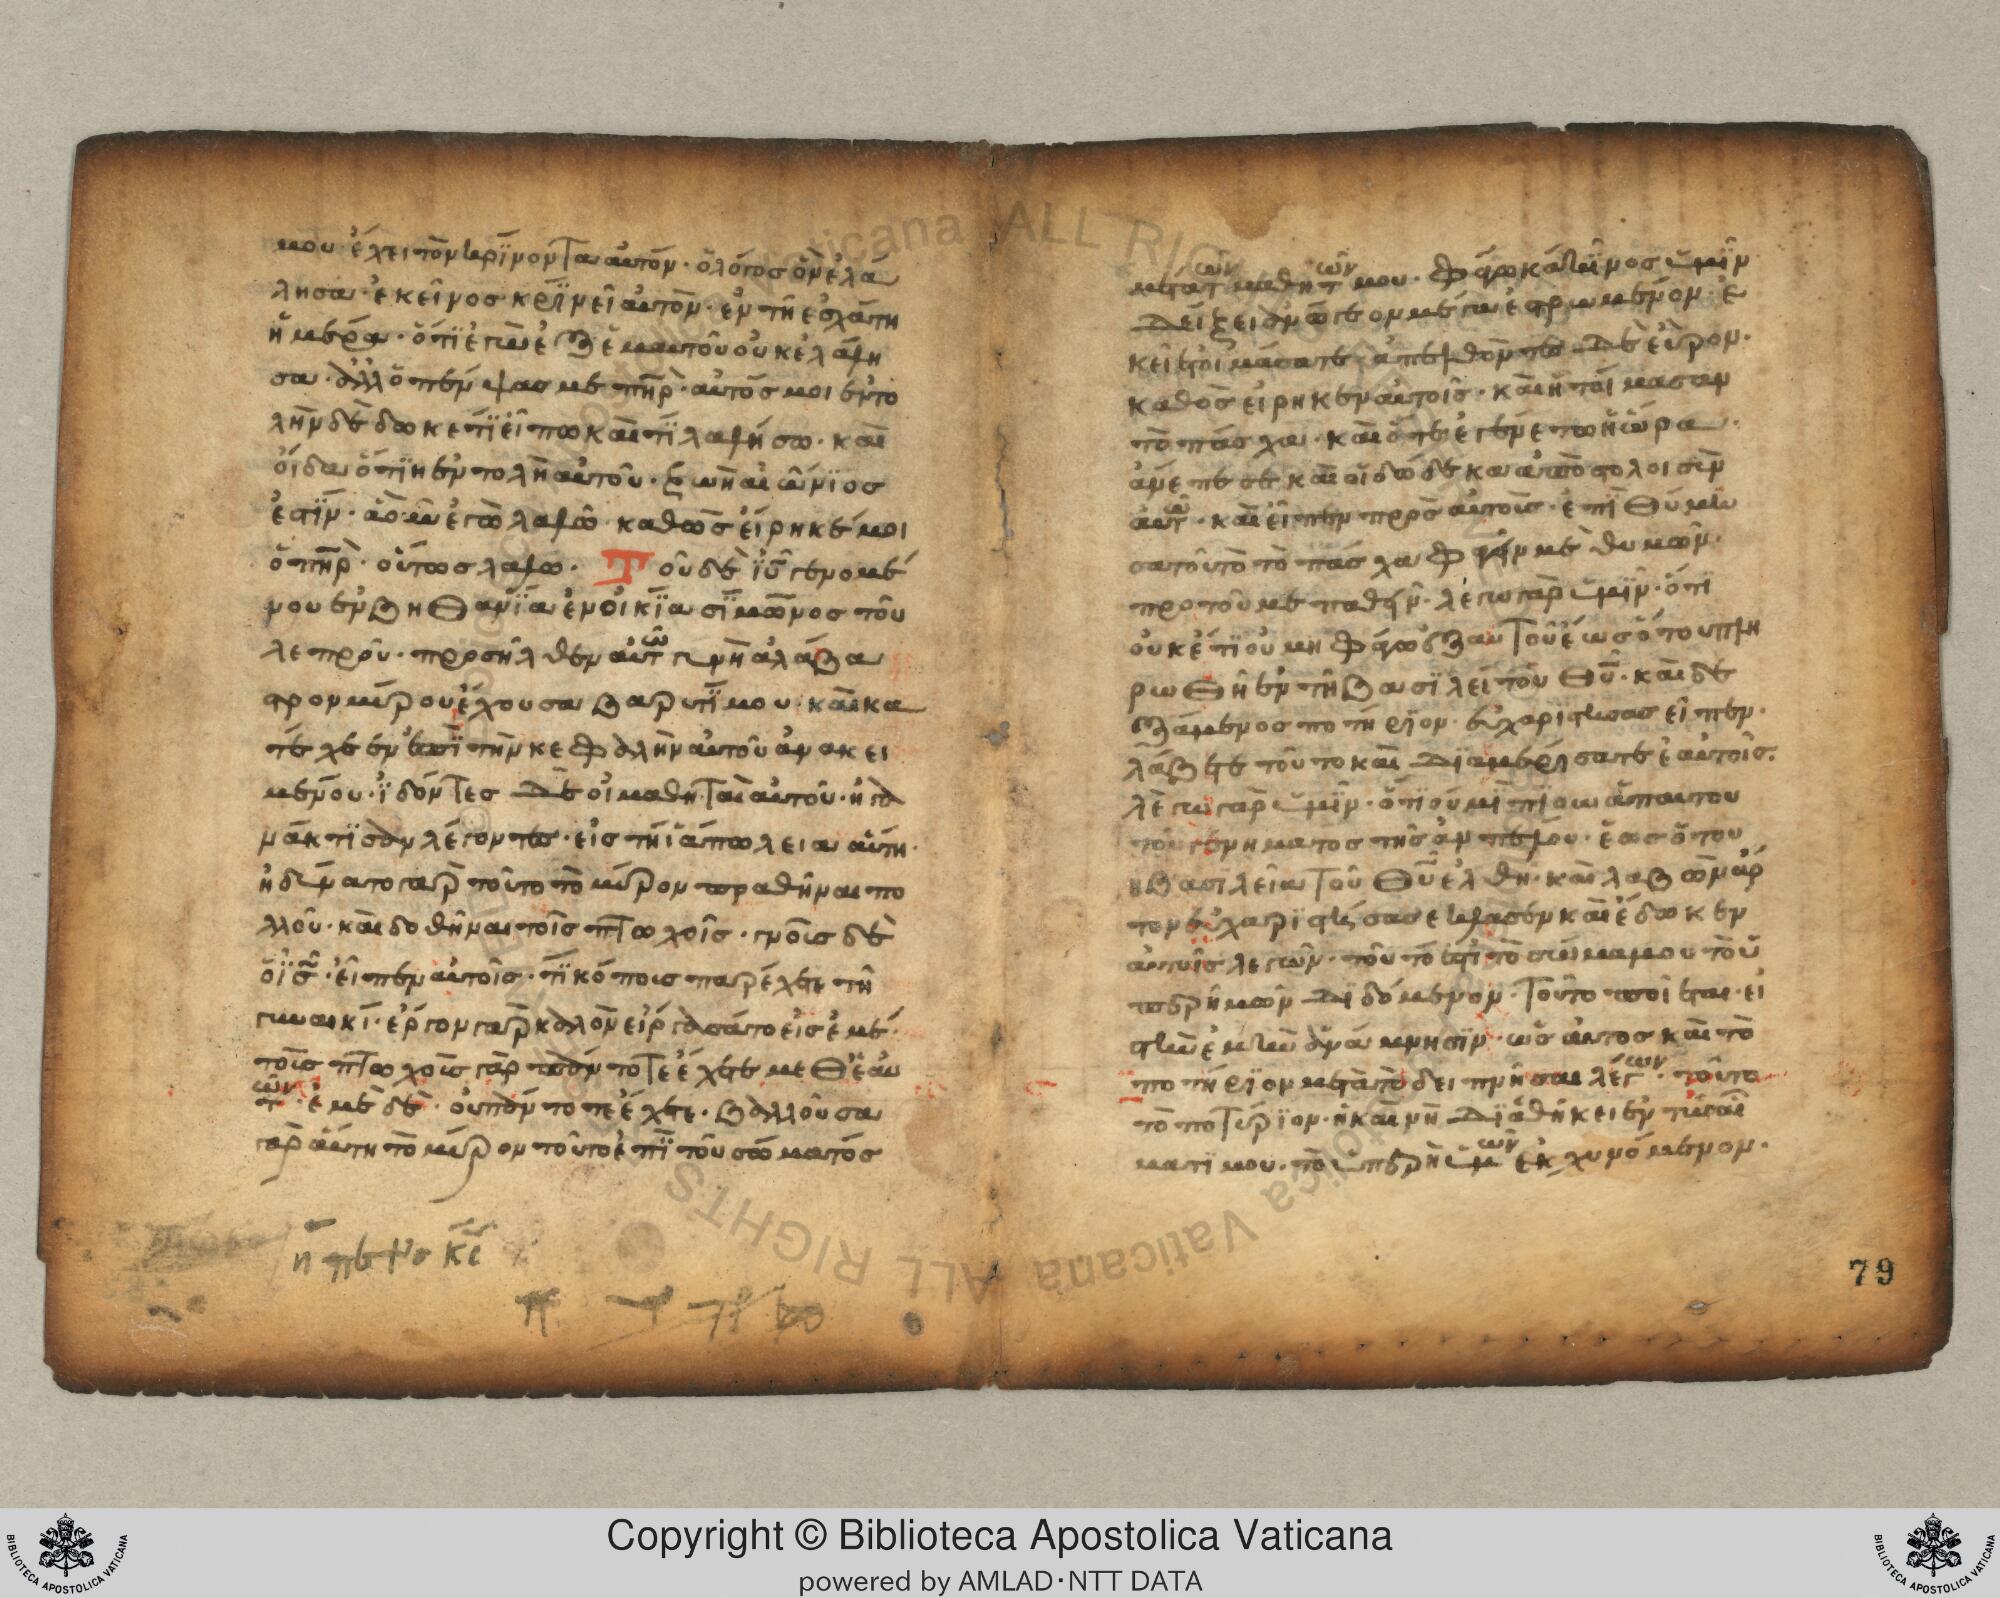 μου· ἔχει τὸν κρίνοντα αὐτόν· ὁ λόγος ὃν ἐλά
λησα· ἐκεῖνος κρινεῖ αὐτὸν· ἐν τῆ ἐσχάτη
ἡμέρα· ὅτι ἐγὼ ἐξ ἐμαυτοῦ οὐκ ἐλάλη
σα· ἀλλ ὁ πέμψας με πηρ· αὐτός μοι ἐντο
λὴν δέδωκε τί εἴπω καὶ τί λαλήσω· καὶ
οἶδα ὅτι ἡ ἐντολὴ αὐτοῦ· ζωὴ αἰώνιος
ἐστίν· ἃ οὖν ἐγὼ λαλῶ καθὼς εἴρηκέ μοι
ὁ πηρ· οὕτως λαλῶ· Τοῦ δὲ ιυ γενομέ
νου ἐν βηθανία ἐν οἰκία σίμωνος τοῦ
λεπροῦ· προσῆλθεν αὐτῶ γυνὴ ἀλάβα
στρον μύρου ἔχουσα βαρυτίμου· καὶ κα
τέχεεν ἐπὶ τὴν κεφαλὴν αὐτοῦ ἀνακει
μένου· ἰδόντες δὲ οἱ μαθηταὶ αὐτοῦ· ἠγα
νάκτισαν λέγοντες· εἰς τί ἡ ἀπώλεια αὕτη·
ἠδύνατο γὰρ τοῦτο τὸ μύρον πραθῆναι πο
λλοῦ· καὶ δοθῆναι τοῖς πτωχοῖς· γνοὺς δὲ
ὁ ις· εἶπεν αὐτοῖς· τί κόπους παρέχετε τῆ
γυναικί· ἔργον γὰρ καλὸν εἰργάσατο εἰς ἐμέ·
τοὺς πτωχοὺς γὰρ πάντοτε ἔχετε μεθ ἑαυ
τῶν· ἐμὲ δὲ· οὐ πάντοτε ἔχετε· βαλλοῦσα
γὰρ αὕτη τὸ μύρον τοῦτο ἐπὶ τοῦ σώματός
μετὰ τῶν μαθητῶν μου· φάγω κἀκεῖνος ὑμῖν
δείξει ἀνώγεον μέγα ἐστρωμένον· ἐ
κεῖ ἑτοιμάσατε· ἀπελθόντες δὲ εὗρον·
καθὼς εἴρηκεν αὐτοῖς· καὶ ἡτοίμασαν
τὸ πάσχα· καὶ ὅτε ἐγένετο ἡ ὥρα·
ἀνέπεσε καὶ οἱ δώδεκα ἀπόστολοι σὺν
αὐτῶ· καὶ εἶπεν πρὸς αὐτούς· ἐπιθυμία
σα τοῦτο τὸ πάσχα φαγεῖν μεθ υμῶν·
πρὸ τοῦ με παθεῖν· λέγω γὰρ ὑμῖν· ὅτι
οὐκέτι οὐ μὴ φάγω ἐξ αὐτοῦ ἕως ὅτου πλη
ρωθῆ ἐν τῆ βασιλεία τοῦ θυ· καὶ δε
ξάμενος ποτήριον· εὐχαριστήσας εἶπεν·
λάβετε τοῦτο καὶ διαμερίσατε ἑαυτοῖς·
λέγω γὰρ ὑμῖν· ὅτι οὐ μὴ πίω ἀπὸ τοῦ
τοῦ γενήματος τῆς ἀμπέλου· ἕως ὅτου
ἡ βασιλεία τοῦ θυ ἔλθη· καὶ λαβὼν ἄρ
τον εὐχαριστήσας ἔκλασεν καὶ ἔδωκεν
αὐτοῖς λέγων· τοῦτό ἐστι τὸ σῶμα μου τὸ ὑ
πὲρ ἡμῶν διδόμενον· τοῦτο ποιεῖτε· εἰ
στὴν ἐμὴν ἀνάμνησιν· ὡσαύτως καὶ τὸ
ποτήριον μετὰ τὸ δειπνῆσαι λέγων· τοῦτο
τὸ ποτήριον· ἡ καινὴ διαθήκει ἐν τῶ αἵ
ματί μου· τὸ ὑπὲρ ὑμῶν ἐκχυνόμενον·
79
Copyright © Biblioteca Apostolica Vaticana
powered by AMLAD·NTT DATA